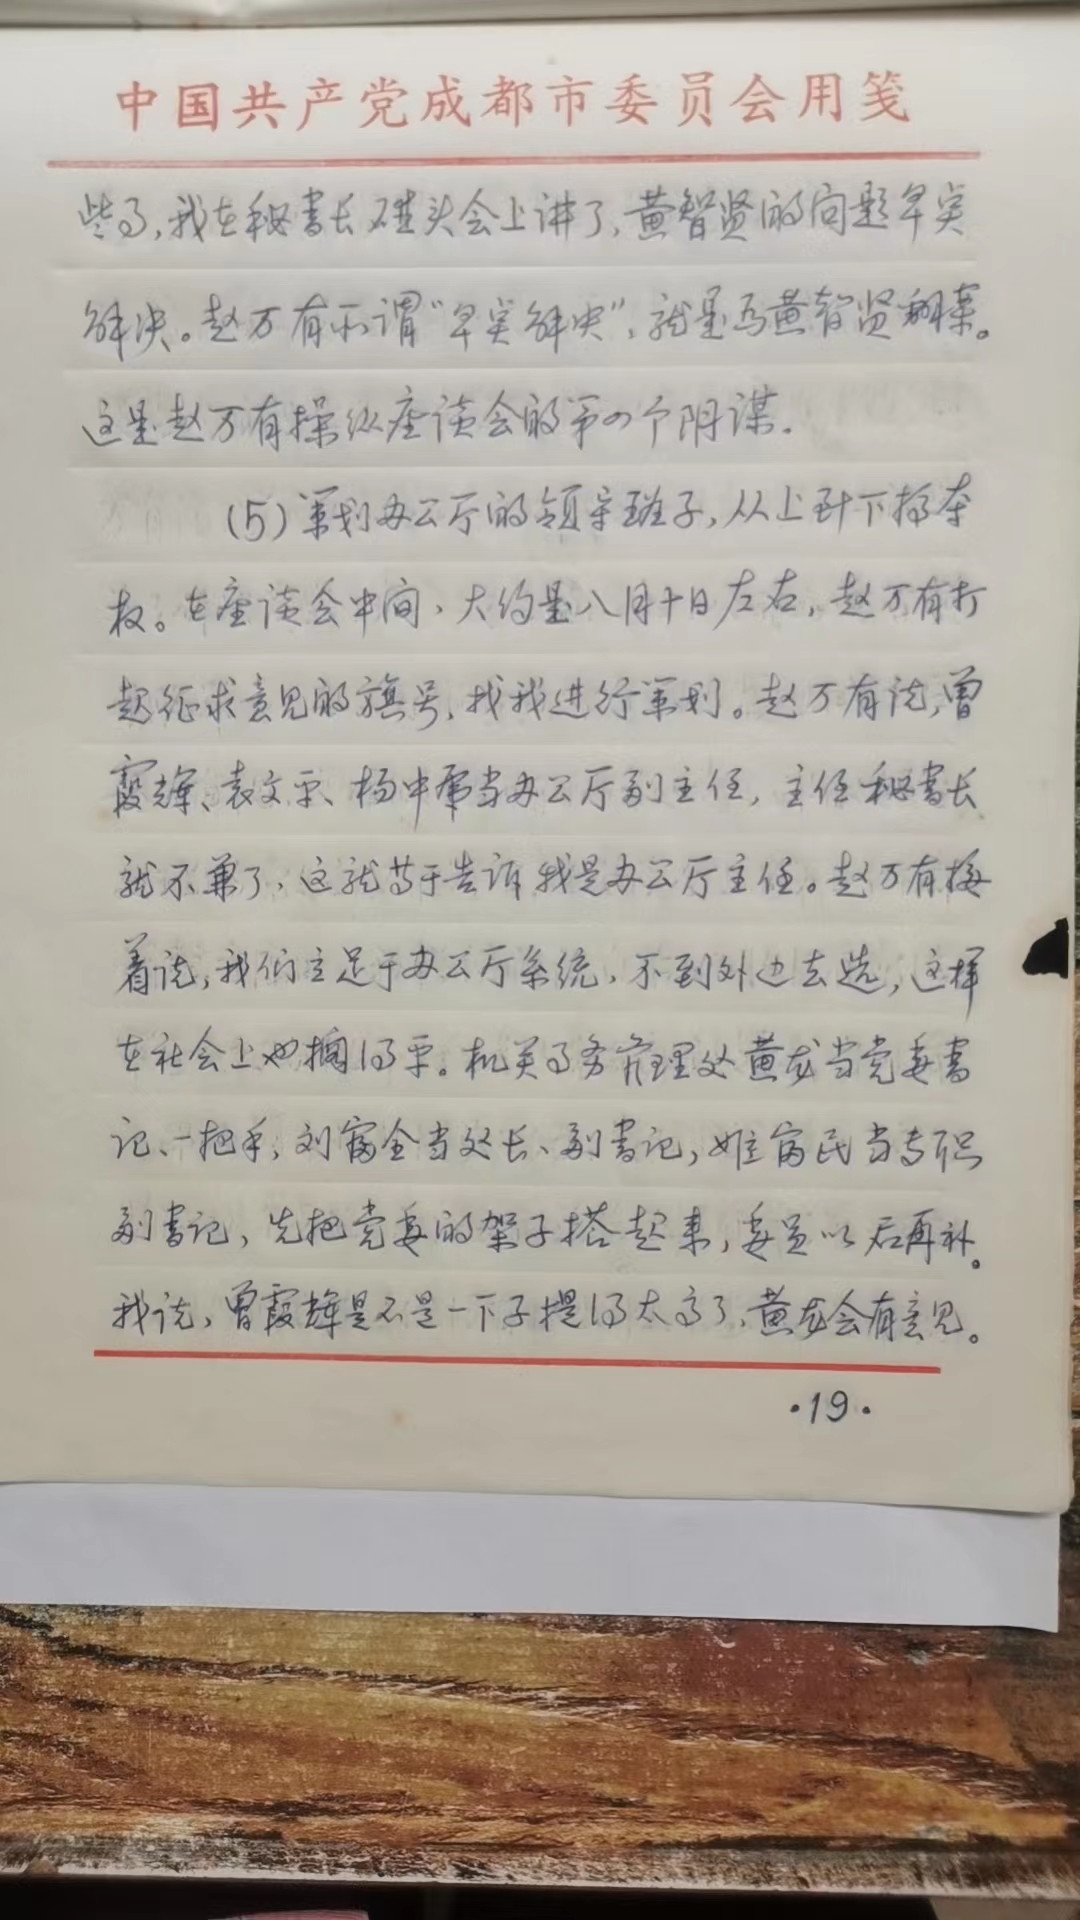 中国共产党成都市委员会用笺
些了，我在秘书长碰头会上讲了，黄智贤的问题早实
解决。赵万有所谓“早实解决”，就是为黄智贤翻案。
这是赵万有操纵座谈会的第四个阴谋。
(5)策划办公厅的领导班子，从上到下搞夺
权。在座谈会中间，大约是八月十日左右，赵万有打
起征求意见的旗号，找我进行策划。赵万有说，曾
霞辉、袁文平、杨中甫当办公厅副主任，主任秘书长
就不兼了，这就等于告诉我是办公厅主任。赵万有接
着说，我们立足于办公厅系统，不到外边去选，这样
在社会上也搁得平。机关事务管理处黄龙当党委书
记、一把手，刘富全当处长、副书记，富民当专职
副书记，先把党委的架子搭起来，委员以后再补。
我说，曾霞辉是不是一下子提得太高了，黄龙会有意见。
·19·